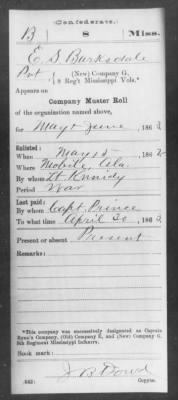 Confederate.
B 8 Miss.
E. S Barksdale
Pvt, (New) Company G,
8 Reg't Mississippi Vols.*
Appears on
Company Muster Roll
of the organization named above,
for May & June, 186
Enlisted:
When May 15, 186
Where Mobile, Ala.
By whom Lt Kennidy
Period War
Last paid:
By whom Capt. Prince
To what time April 30, 186
Present or absent Present
Remarks:
*This company was successively designated as Captain
Ryan's Company, (Old) Company E, and (New) Company G,
8th Regiment Mississippi Infantry.
Book mark:
(642) Copyist.